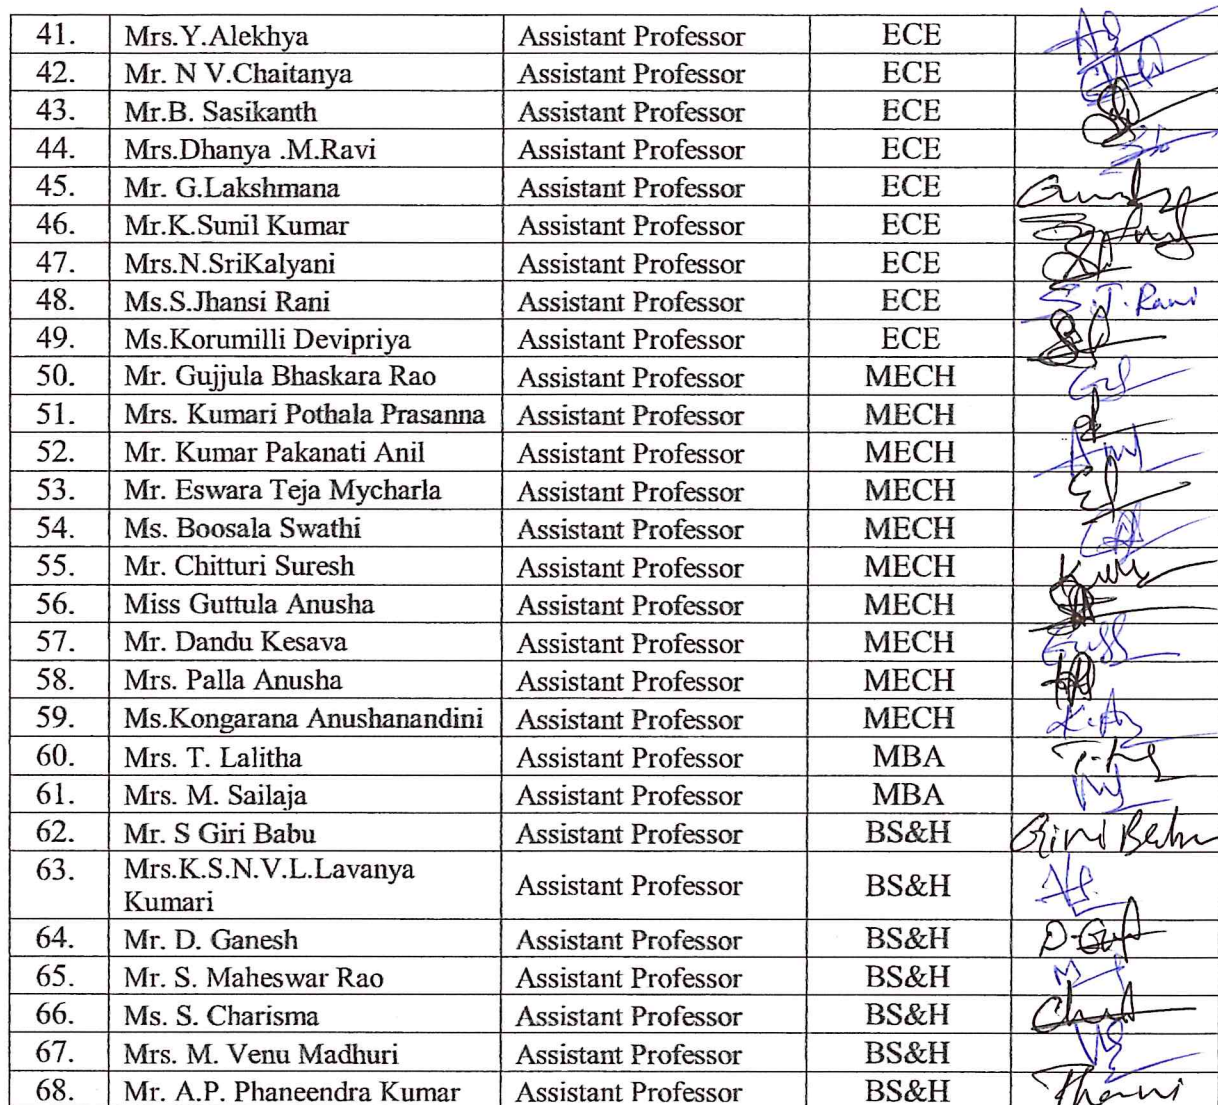 41. Mrs.Y.Alekhya Assistant Professor ECE
42. Mr. N V.Chaitanya Assistant Professor ECE
43. Mr.B. Sasikanth Assistant Professor ECE
44. Mrs.Dhanya .M.Ravi Assistant Professor ECE
45. Mr. G.Lakshmana Assistant Professor ECE
46. Mr.K.Sunil Kumar Assistant Professor ECE
47. Mrs.N.SriKalyani Assistant Professor ECE
48. Ms.S.Jhansi Rani Assistant Professor ECE S.J.Rani
49. Ms.Korumilli Devipriya Assistant Professor ECE
50. Mr. Gujjula Bhaskara Rao Assistant Professor MECH
51. Mrs. Kumari Pothala Prasanna Assistant Professor MECH
52. Mr. Kumar Pakanati Anil Assistant Professor MECH
53. Mr. Eswara Teja Mycharla Assistant Professor MECH
54. Ms. Boosala Swathi Assistant Professor MECH
55. Mr. Chitturi Suresh Assistant Professor MECH
56. Miss Guttula Anusha Assistant Professor MECH
57. Mr. Dandu Kesava Assistant Professor MECH
58. Mrs. Palla Anusha Assistant Professor MECH
59. Ms.Kongarana Anushanandini Assistant Professor MECH
60. Mrs. T. Lalitha Assistant Professor MBA
61. Mrs. M. Sailaja Assistant Professor MBA
62. Mr. S Giri Babu Assistant Professor BS&H Giri Babu
63. Mrs.K.S.N.V.L.Lavanya
Kumari Assistant Professor BS&H
64. Mr. D. Ganesh Assistant Professor BS&H
65. Mr. S. Maheswar Rao Assistant Professor BS&H
66. Ms. S. Charisma Assistant Professor BS&H
67. Mrs. M. Venu Madhuri Assistant Professor BS&H
68. Mr. A.P. Phaneendra Kumar Assistant Professor BS&H